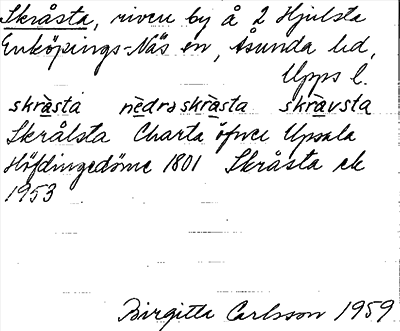 Skråsta, riven by å 2 Hjulsta
Enköpings-Näs sn, Åsunda hd,
Upps l.
skrå̀sta nè̱drəskrà̱sta skrà̱vsta
Skrålsta Charta öfver Upsala
Höfdingedöme 1801 Skråsta ek
1953
Birgitta Carlsson 1959